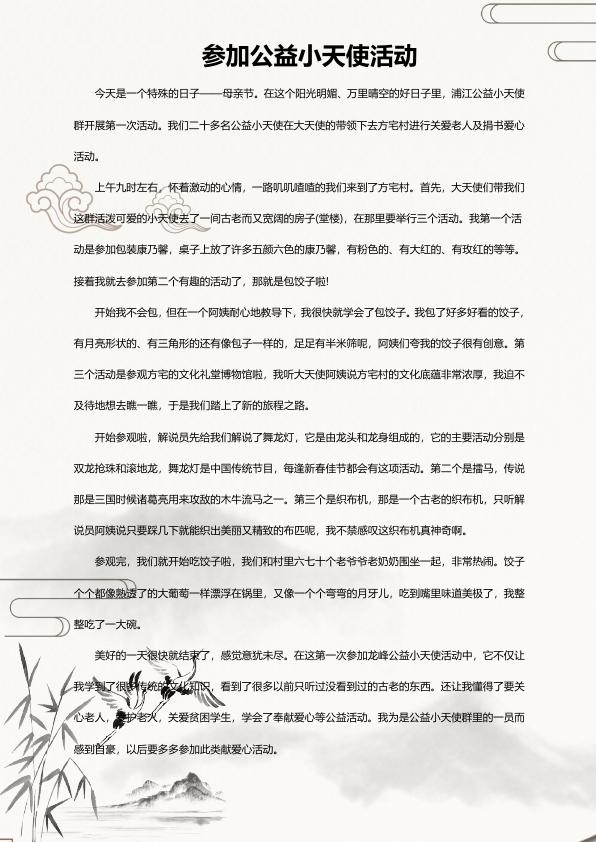 参加公益小天使活动
今天是一个特殊的日子——母亲节。在这个阳光明媚、万里晴空的好日子里，浦江公益小天使
群开展第一次活动。我们二十多名公益小天使在大天使的带领下去方宅村进行关爱老人及捐书爱心
活动。
上午九时左右，怀着激动的心情，一路叽叽喳喳的我们来到了方宅村。首先，大天使们带我们
这群活泼可爱的小天使去了一间古老而又宽阔的房子(堂楼)，在那里要举行三个活动。我第一个活
动是参加包装康乃馨，桌子上放了许多五颜六色的康乃馨，有粉色的、有大红的、有玫红的等等。
接着我就去参加第二个有趣的活动了，那就是包饺子啦!
开始我不会包，但在一个阿姨耐心地教导下，我很快就学会了包饺子。我包了好多好看的饺子，
有月亮形状的、有三角形的还有像包子一样的，足足有半米筛呢，阿姨们夸我的饺子很有创意。第
三个活动是参观方宅的文化礼堂博物馆啦，我听大天使阿姨说方宅村的文化底蕴非常浓厚，我迫不
及待地想去瞧一瞧，于是我们踏上了新的旅程之路。
开始参观啦，解说员先给我们解说了舞龙灯，它是由龙头和龙身组成的，它的主要活动分别是
双龙抢珠和滚地龙，舞龙灯是中国传统节目，每逢新春佳节都会有这项活动。第二个是擂马，传说
那是三国时候诸葛亮用来攻敌的木牛流马之一。第三个是织布机，那是一个古老的织布机，只听解
说员阿姨说只要踩几下就能织出美丽又精致的布匹呢，我不禁感叹这织布机真神奇啊。
参观完，我们就开始吃饺子啦，我们和村里六七十个老爷爷老奶奶围坐一起，非常热闹。饺子
个个都像熟透了的大葡萄一样漂浮在锅里，又像一个个弯弯的月牙儿，吃到嘴里味道美极了，我整
整吃了一大碗。
美好的一天很快就结束了，感觉意犹未尽。在这第一次参加龙峰公益小天使活动中，它不仅让
我学到了很多传统的文化知识，看到了很多以前只听过没看到过的古老的东西。还让我懂得了要关
心老人，爱护老人，关爱贫困学生，学会了奉献爱心等公益活动。我为是公益小天使群里的一员而
感到自豪，以后要多多参加此类献爱心活动。